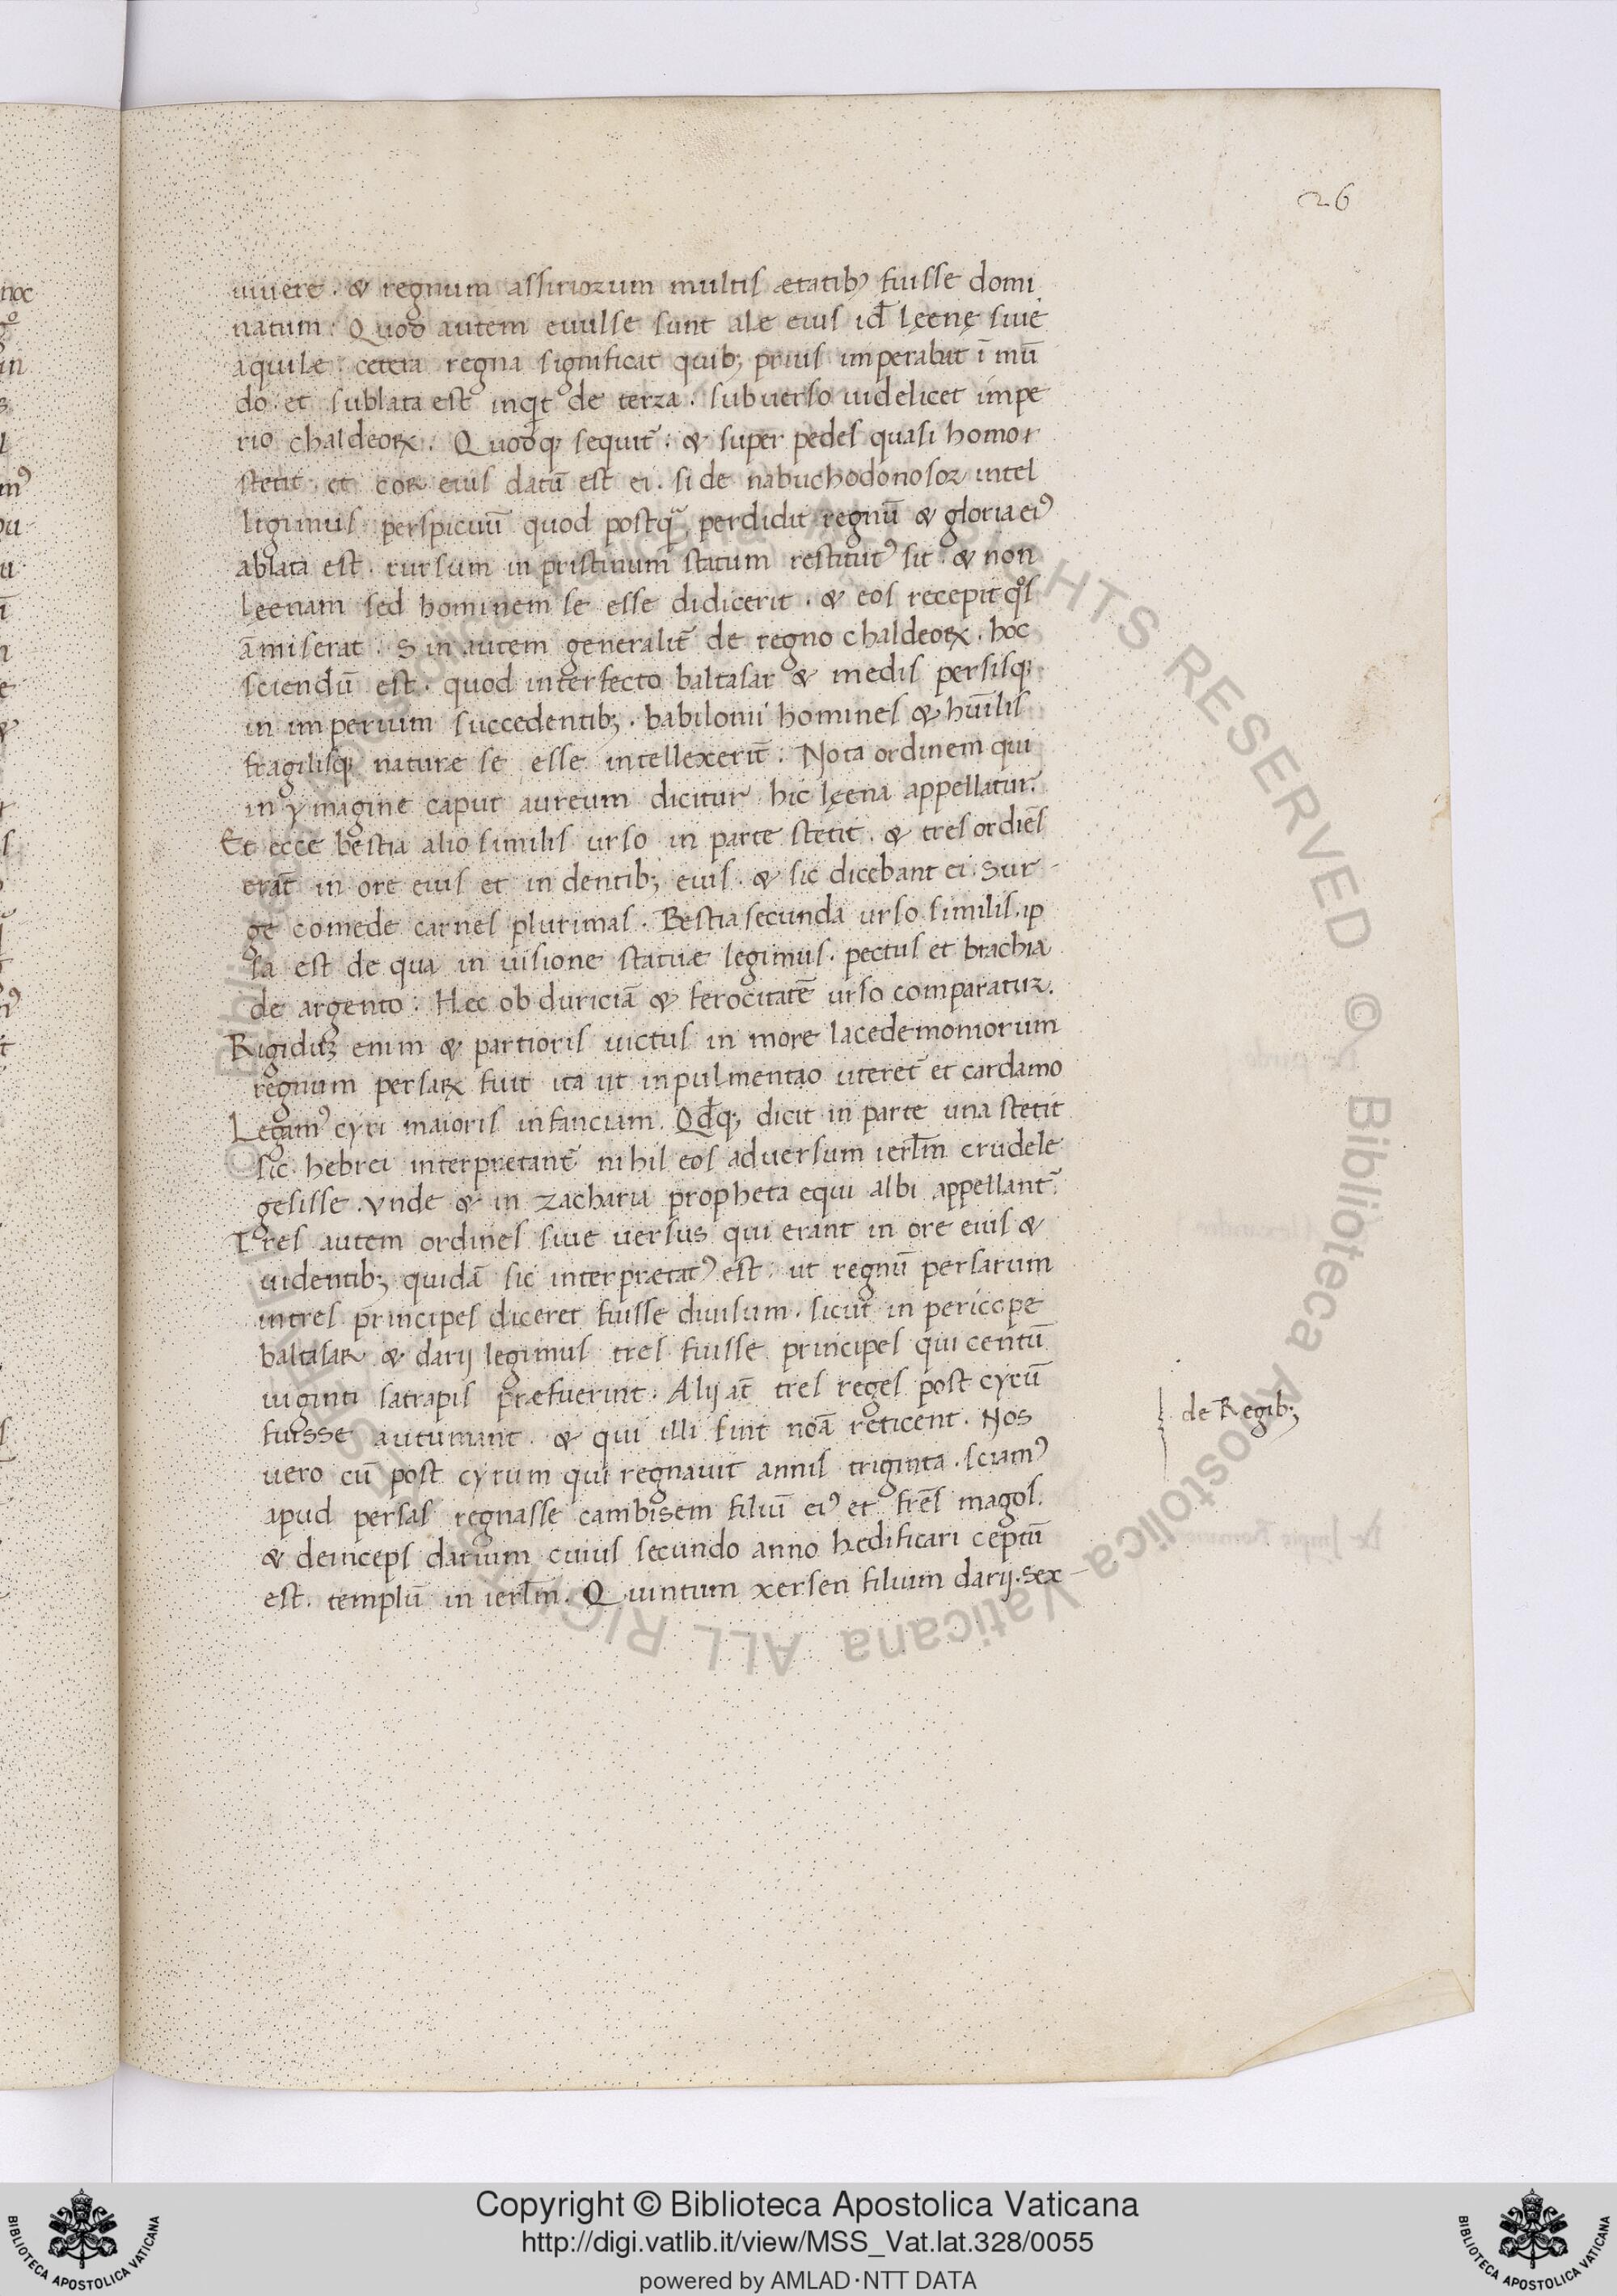 26
uiuere. & regnum assiriorum multis ætatibꝰ fuisse domi
natum. Quod autem euulse sunt ale eius id̄ leęnę siue
aquilæ. cetera regna significat quib; prius imperabat ī mū
do. et sublata est inqt de terra. subuerso uidelicet impe
rio chaldeoꝝ. Quodq; sequit̄. & super pedes quasi homo
stetit. et cor eius datū est ei. si de nabuchodonosor intel
ligimus perspicuū quod postq̄ perdidit regnū & gloria eiꝰ
ablata est. rursum in pristinum statum restitutꝰ sit. & non
leenam sed hominem se esse didicerit. & eos recepit qͦs
amiserat. Sin autem generalit̄ de regno chaldeoꝝ. hoc
sciendū est. quod interfecto baltasar & medis persisq;
in imperium succedentib;. babilonii homines & hūilis
fragilisq; nature se esse intellexerit̄. Nota ordinem qui
in ymagine caput aureum dicitur hic leęna appellatur.
Et ecce bestia alio similis urso in parte stetit. & tres ordiēs
erāt in ore eius et in dentib; eius. & sic dicebant ei. Sur-
ge comede carnes plurimas. Bestia secunda urso similis. ip
sa est de qua in uisione statuæ legimus. pectus et brachia
de argento. Hec ob duriciā & ferocitatē urso comparatur.
Rigidū enim & partioris uictus in more lacedemoniorum
regnum persaꝝ fuit ita ut in pulmentao uteret̄ et cardamo
Legamꝰ cyri maioris infanciam. Qd̄q; dicit in parte una stetit
sic hebrei interpretant̄ nihil eos aduersum ierl̄m crudele
gesisse. vnde & in zacharia propheta equi albi appellant̄.
Tres autem ordines siue uersus qui erant in ore eius &
indentib; quidā sic interprætatꝰ est. ut regnū persarum
intres principes diceret fuisse diuisum. sicut in pericope
baltasar & darij legimus tres fuisse principes qui centū
uiginti satrapis præfuerint. Alij āt tres reges post cyrū
fuisse autumant. & qui illi fint noā reticent. Nos
uero cū post cyrum qui regnauit annis triginta. sciamꝰ
apud persas regnasse cambisem filiū eiꝰ et frēs magos.
& deinceps darium cuius secundo anno hedificari ceptū
est. templū in ierl̄m. Quintum xersen filium darij. Sex-
de Regib;
Copyright © Biblioteca Apostolica Vaticana
http://digi.vatlib.it/view/MSS_Vat.lat.328/0055
powered by AMLAD·NTT DATA